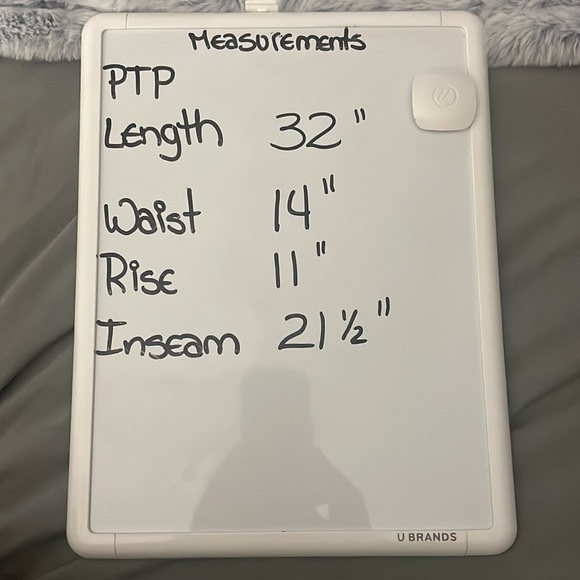 Measurements
PTP
Length 32"
Waist 14"
Rise 11"
Inseam 21 ½"
U BRANDS